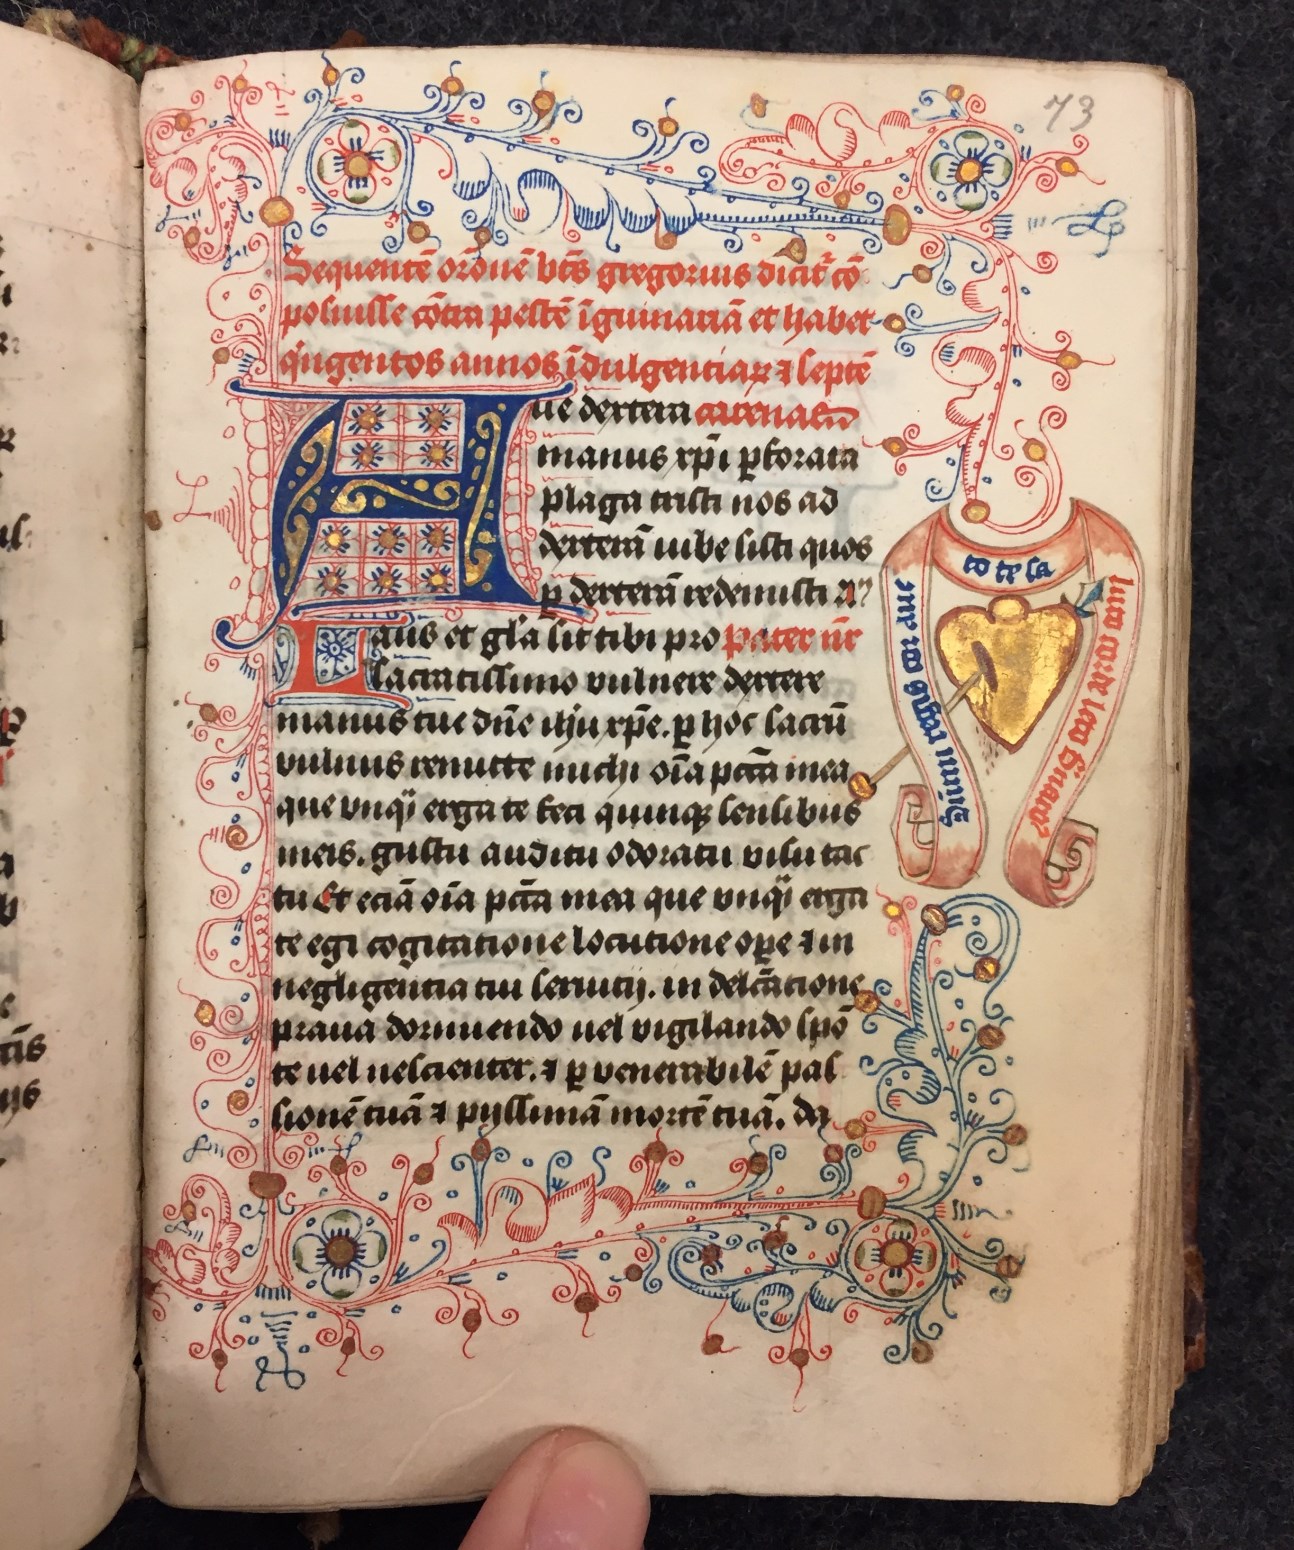 73
Sequentē orōnē btūs gregorius dicit̄ cō
posuisse cōtra pestē īguinariā et habet
qīngentos annos īdulgenciaꝝ ⁊ septē
Aue dextera
manus xp̄i ꝑforata
plaga tristi nos ad
dexterā iube sisti quos
ꝑ dexterā redemisti
Laus et gl̄a sit tibi pro Pater nr̄
sacratissimo vulnere dextere
manus tue dn̄e ihū xp̄e. ꝑ hoc sacrū
vulnus remitte michi oīa pctā mea
que vnqͣ erga te feci quinqꝫ sensibus
meis. gustu auditu odoratu visu tac
tu Et eciā oīa pctā mea que vnqͣ erga
te egi cogitatione locutione oꝑe ⁊ in
negligentia tui seruicij. in delcātione
praua dormiendo uel vigilando spō
te uel nescienter. ⁊ ꝑ venerabilē pas
sionē tuā ⁊ pijssimā mortē tuā. da